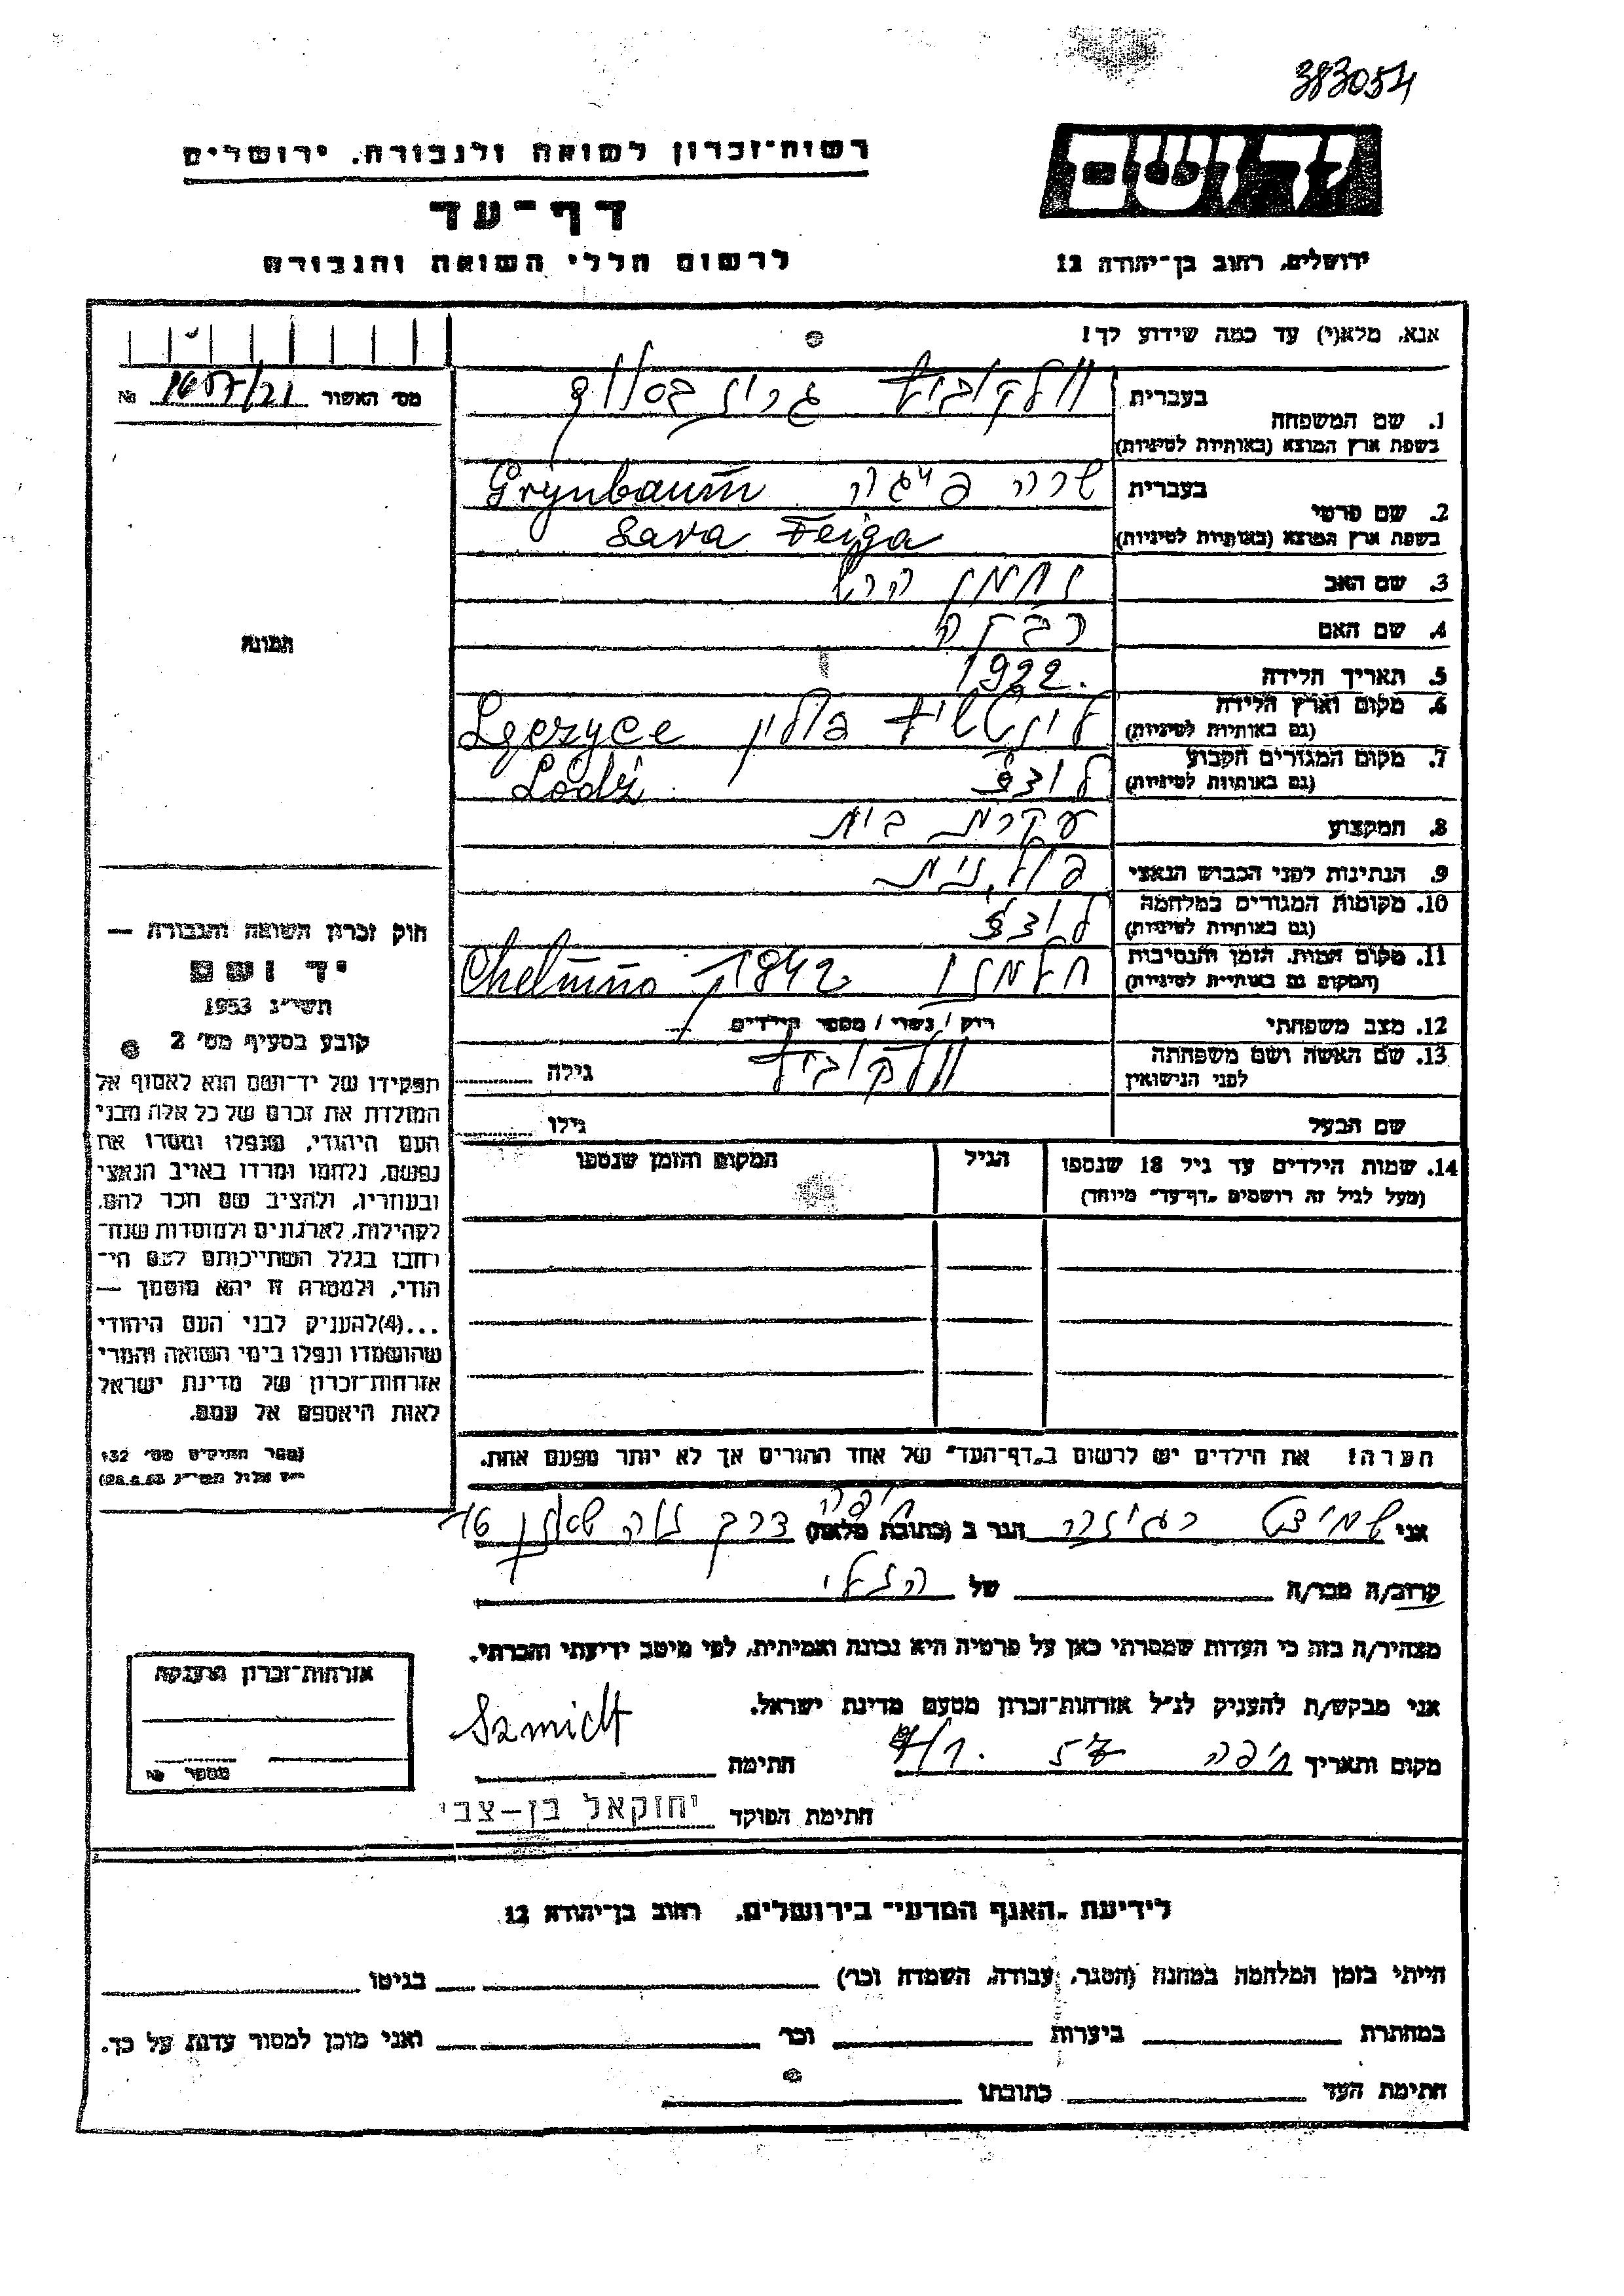 383054
רשות־זכרון לשואה ולגבורה. ירושלים
דף־עד
לרשום חללי השואה והגבורה
יד ושם
ירושלים, רחוב בן־יהודה 12
אנא, מלא(י) עד כמה שידוע לך!
מס׳ האשור №
1. שם המשפחה
בעברית
בשפת ארץ המוצא (באותיות לטיניות)
2. שם פרטי
בעברית שרה פייגה Grynbaum
בשפת ארץ המוצא (באותיות לטיניות) Sara Feiga
3. שם האב נחמן הרש
4. שם האם רבקה
5. תאריך הלידה 1922.
6. מקום וארץ הלידה פולין
(גם באותיות לטיניות)
7. מקום המגורים הקבוע לודז Lodź
(גם באותיות לטיניות)
8. המקצוע עקרת בית
9. הנתינות לפני הכבוש הנאצי פולנית
10. מקומות המגורים במלחמה לודז
(גם באותיות לטיניות)
11. מקום המות, הזמן והנסיבות חלמנו 1942 Chelmno
(המקום גם באותיות לטיניות)
12. מצב משפחתי רווק / נשוי / מספר הילדים
13. שם האשה ושם משפחתה
לפני הנישואין
גילה
שם הבעל גילו
14. שמות הילדים עד גיל 18 שנספו
(מעל לגיל זה רושמים „דף־עד״ מיוחד)
הגיל
המקום והזמן שנספו
תמונה
חוק זכרון השואה והגבורה —
יד ושם
תשי״ג 1953
קובע בסעיף מס׳ 2
תפקידו של יד־ושם הוא לאסוף אל
המולדת את זכרם של כל אלה מבני
העם היהודי, שנפלו ומסרו את
נפשם, נלחמו ומרדו באויב הנאצי
ובעוזריו, ולהציב שם וזכר להם,
לקהילות, לארגונים ולמוסדות שנח־
רבו בגלל השתייכותם לעם הי־
הודי, ולמטרה זו יהא מוסמך —
...(4)להעניק לבני העם היהודי
שהושמדו ונפלו בימי השואה והמרי
אזרחות־זכרון של מדינת ישראל
לאות היאספם אל עמם.
(ספר החוקים מס׳ 132
הערה! את הילדים יש לרשום ב„דף־העד״ של אחד ההורים אך לא יותר מפעם אחת.
אני שמידט הגר ב (כתובת מלאה) חיפה דרך נוה שאנן
קרוב/ה מכר/ה של
מצהיר/ה בזה כי העדות שמסרתי כאן על פרטיה היא נכונה ואמיתית, לפי מיטב ידיעתי והכרתי.
אני מבקש/ת להעניק לנ״ל אזרחות־זכרון מטעם מדינת ישראל.
מקום ותאריך חיפה חתימה Szmidt
חתימת הפוקד יחזקאל בן-צבי
אזרחות־זכרון הוענקה
מספר №
לידיעת „האגף המדעי״ בירושלים, רחוב בן־יהודה 12
הייתי בזמן המלחמה במחנה (הסגר, עבודה, השמדה וכו׳) בגיטו
במחתרת ביערות וכו׳ ואני מוכן למסור עדות על כך.
חתימת העד כתובתו